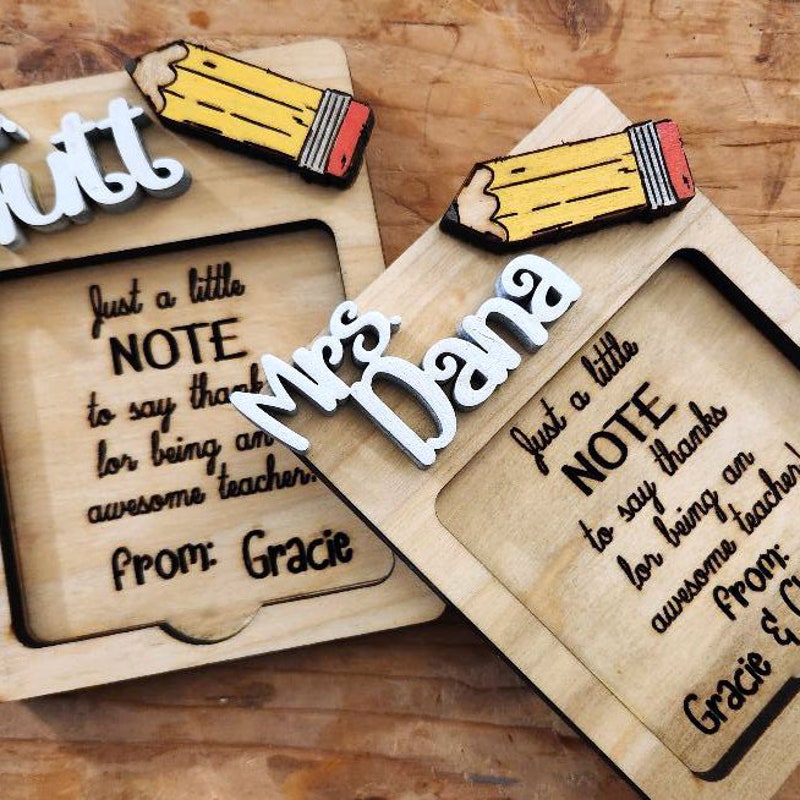 Just a little
NOTE
to say thank
for being an
awesome teacher!
from: Gracie
Mrs.
Dana
Just a little
NOTE
to say thanks
for being an
awesome teacher!
from:
Gracie &